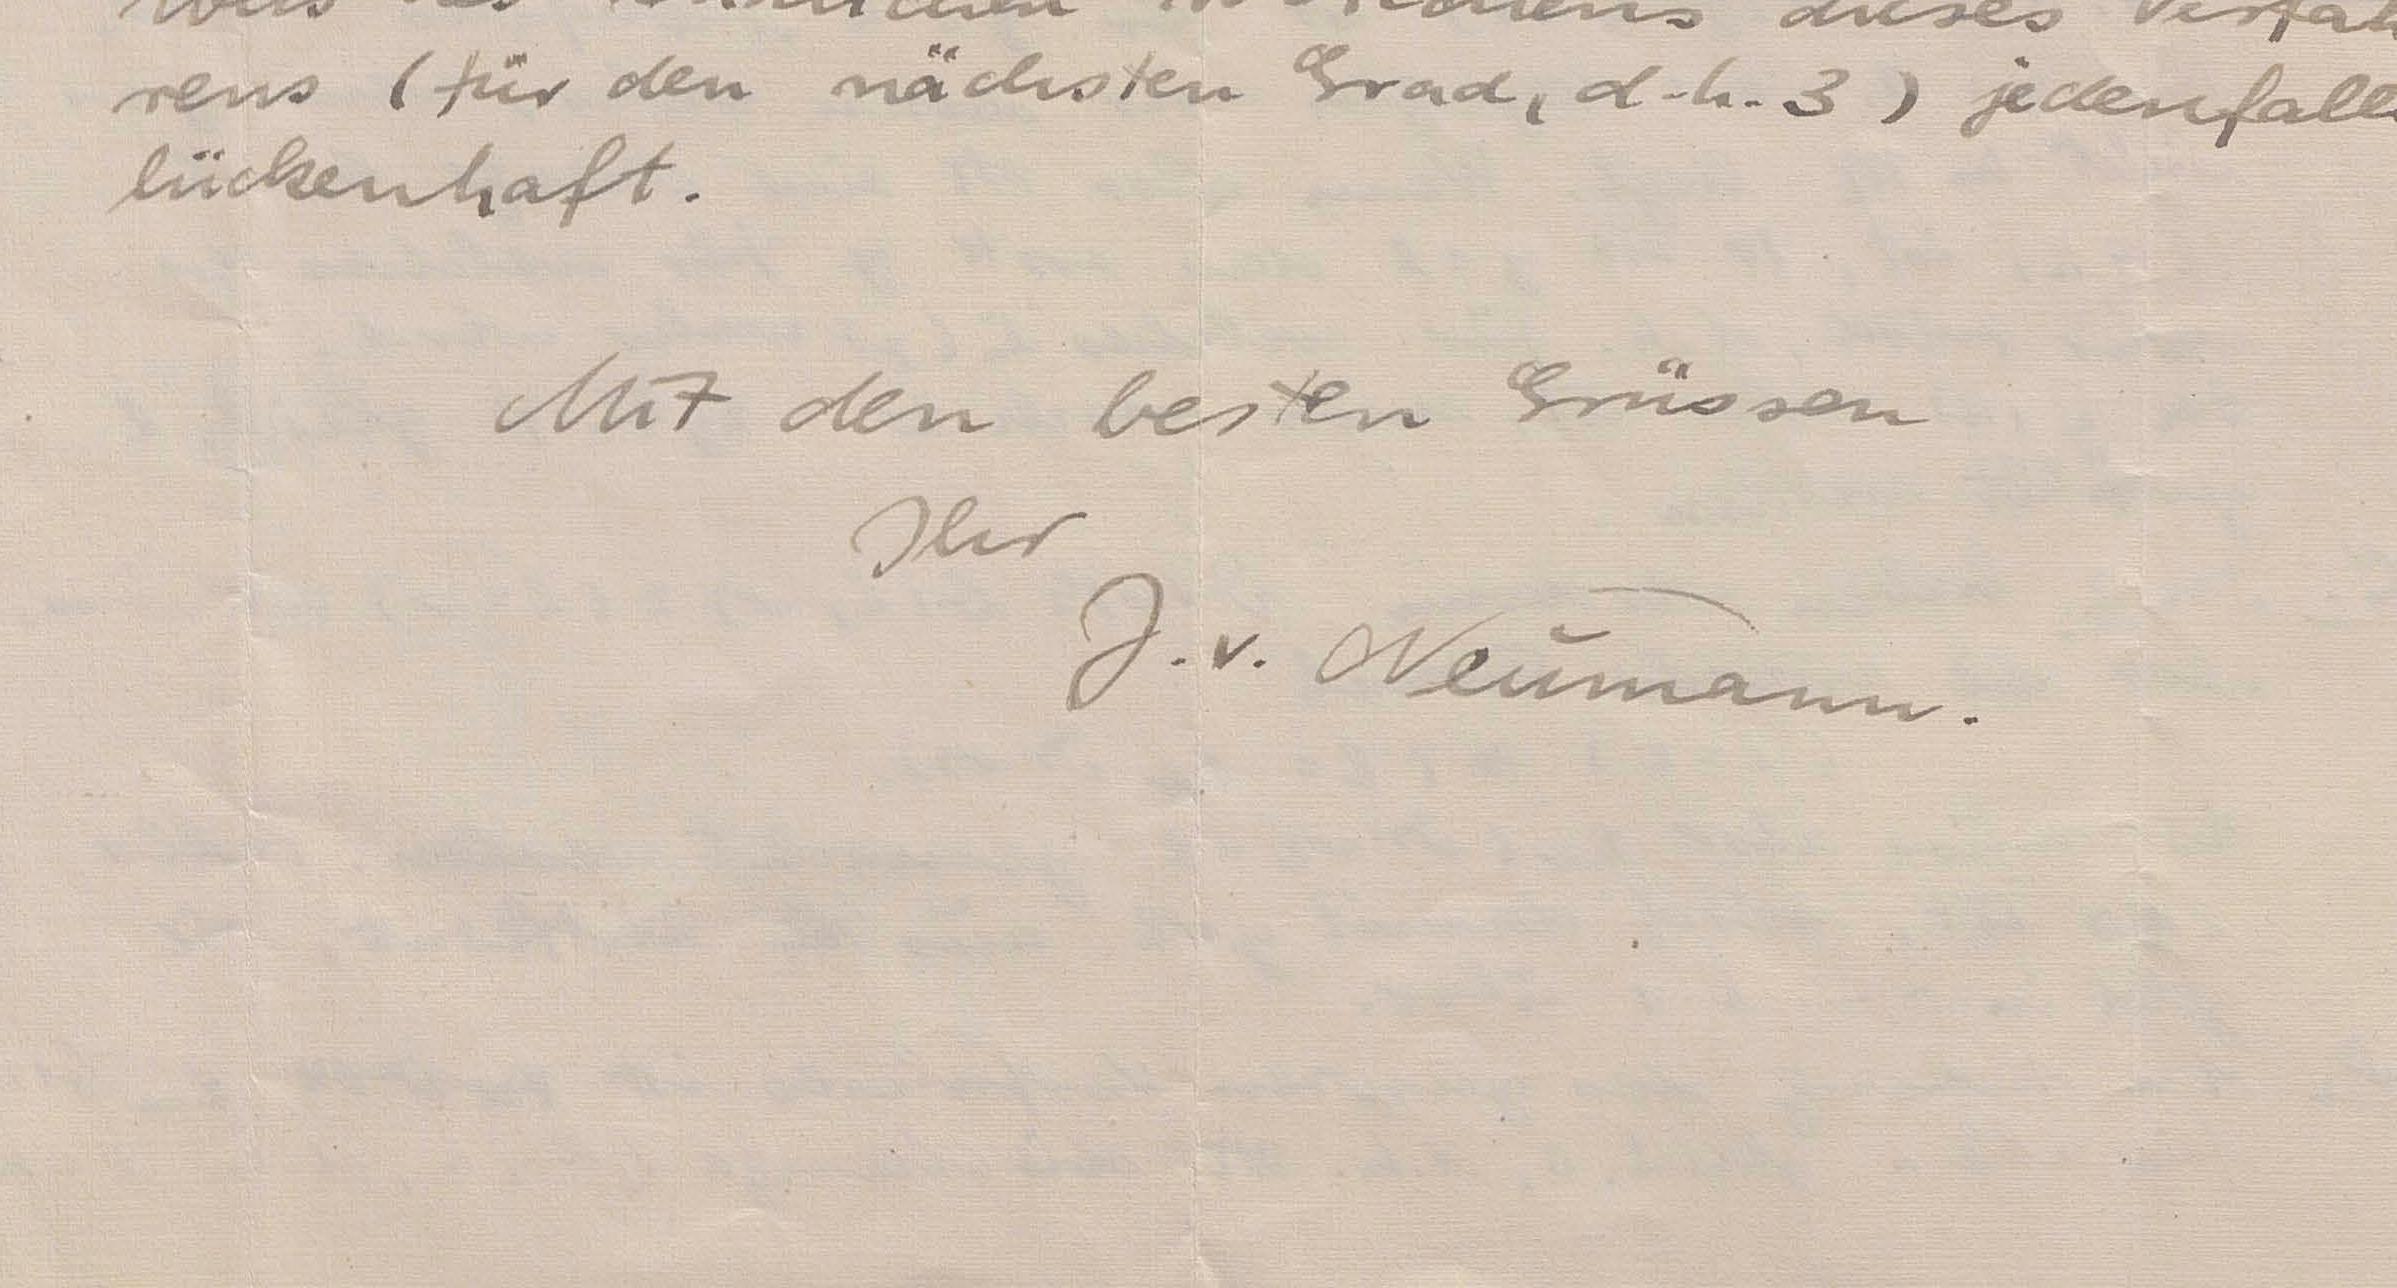 dieses Verfah
rens (für den nächsten Grad, d.h. 3) jedenfalls
lückenhaft.
Mit den besten Grüssen
Ihr
J. v. Neumann.